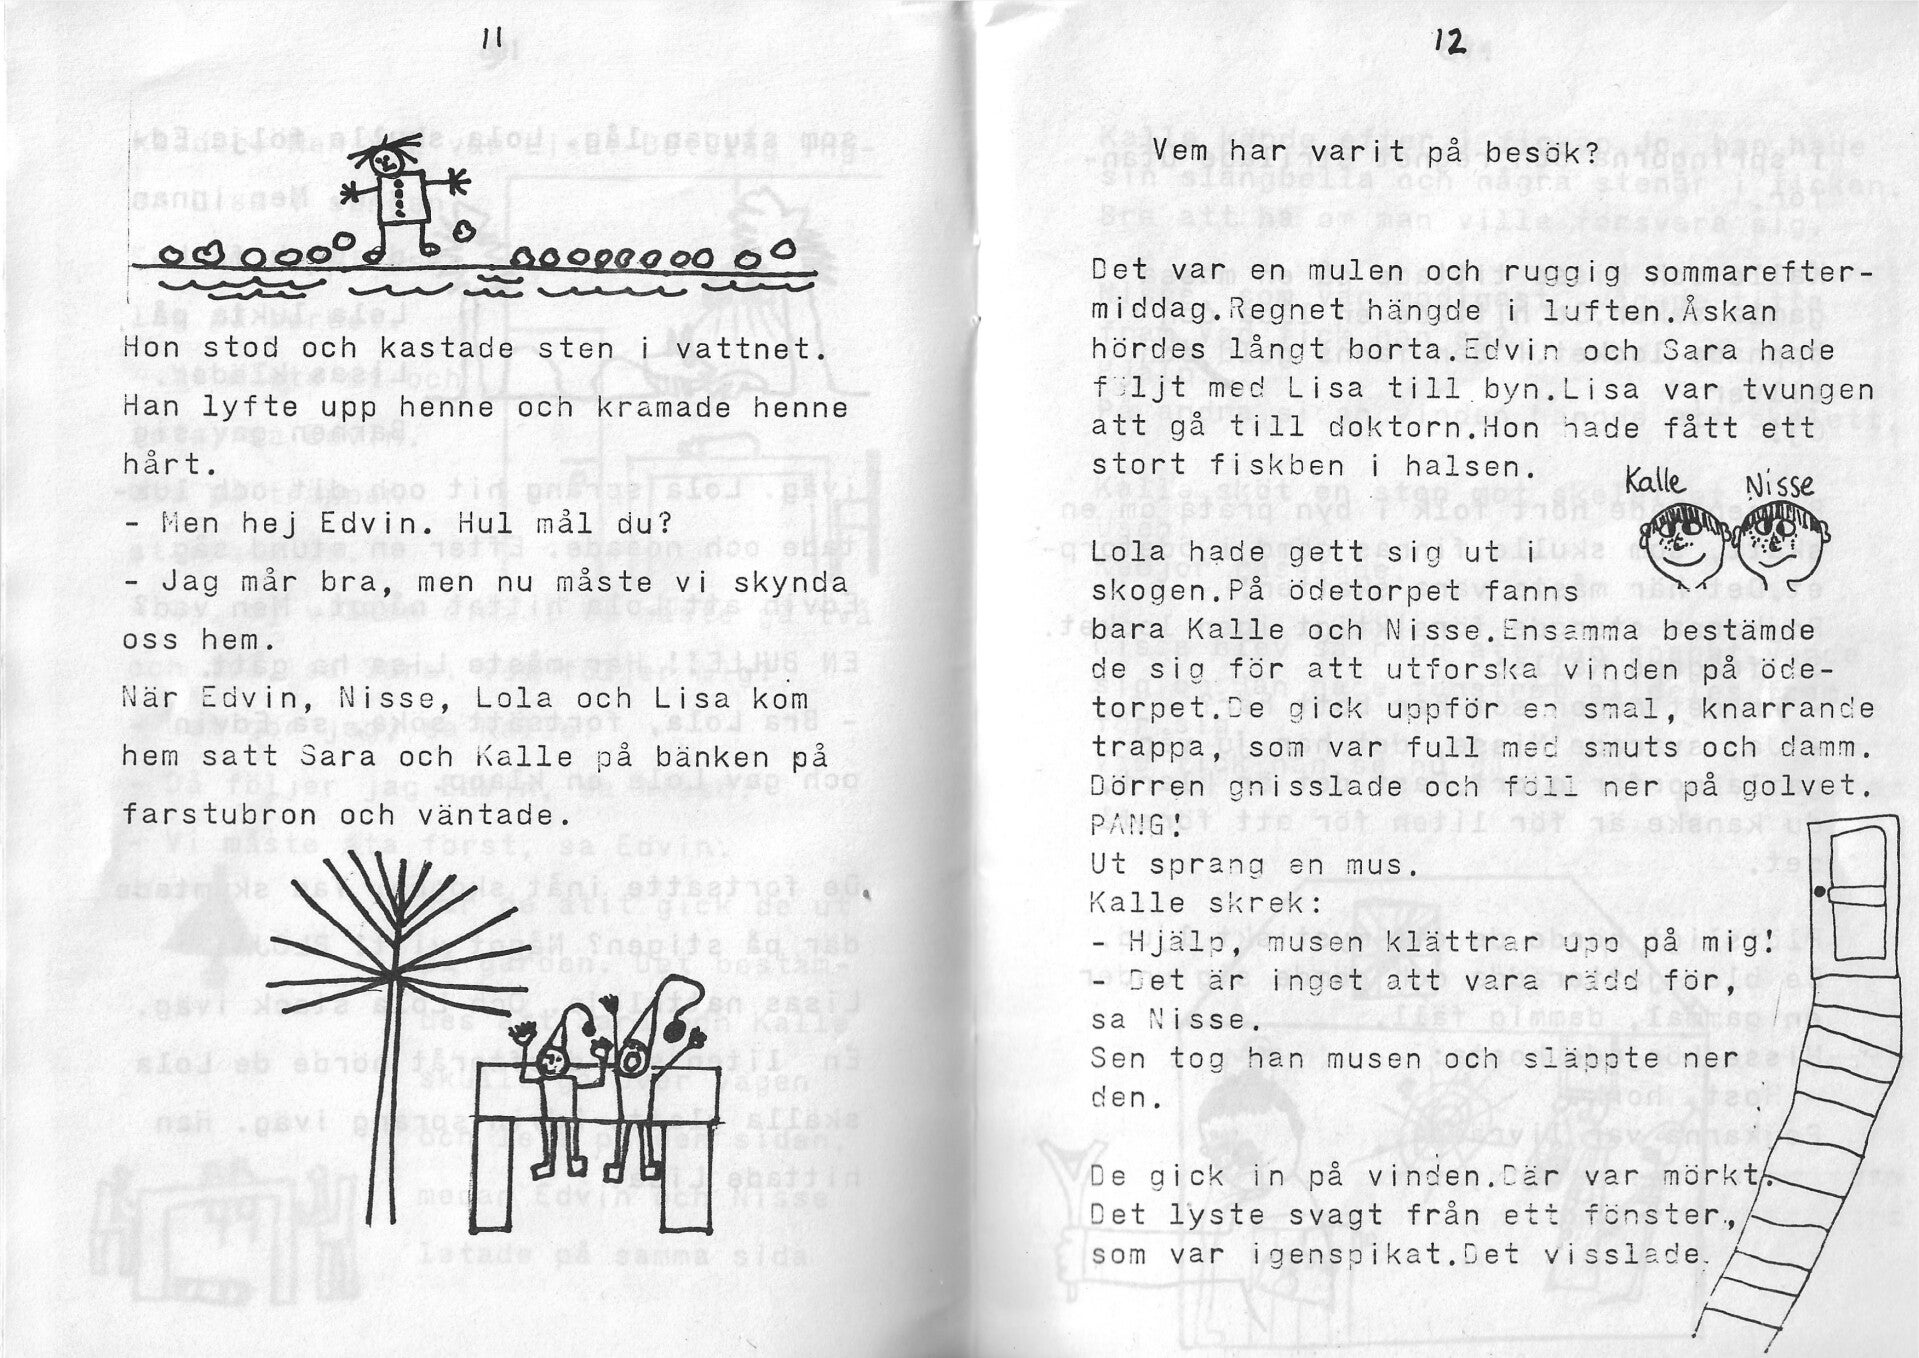 11
Hon stod och kastade sten i vattnet.
Han lyfte upp henne och kramade henne
hårt.
- Men hej Edvin. Hul mål du?
- Jag mår bra, men nu måste vi skynda
oss hem.
När Edvin, Nisse, Lola och Lisa kom
hem satt Sara och Kalle på bänken på
farstubron och väntade.
12
Vem har varit på besök?
Det var en mulen och ruggig sommarefter-
middag.Regnet hängde i luften.Åskan
hördes långt borta.Edvin och Sara hade
följt med Lisa till byn.Lisa var tvungen
att gå till doktorn.Hon hade fått ett
stort fiskben i halsen.
Kalle Nisse
Lola hade gett sig ut i
skogen.På ödetorpet fanns
bara Kalle och Nisse.Ensamma bestämde
de sig för att utforska vinden på öde-
torpet.De gick uppför en smal, knarrande
trappa, som var full med smuts och damm.
Dörren gnisslade och föll ner på golvet.
PANG!
Ut sprang en mus.
Kalle skrek:
- Hjälp, musen klättrar upp på mig!
- Det är inget att vara rädd för,
sa Nisse.
Sen tog han musen och släppte ner
den.
De gick in på vinden.Där var mörkt.
Det lyste svagt från ett fönster,
som var igenspikat.Det visslade.